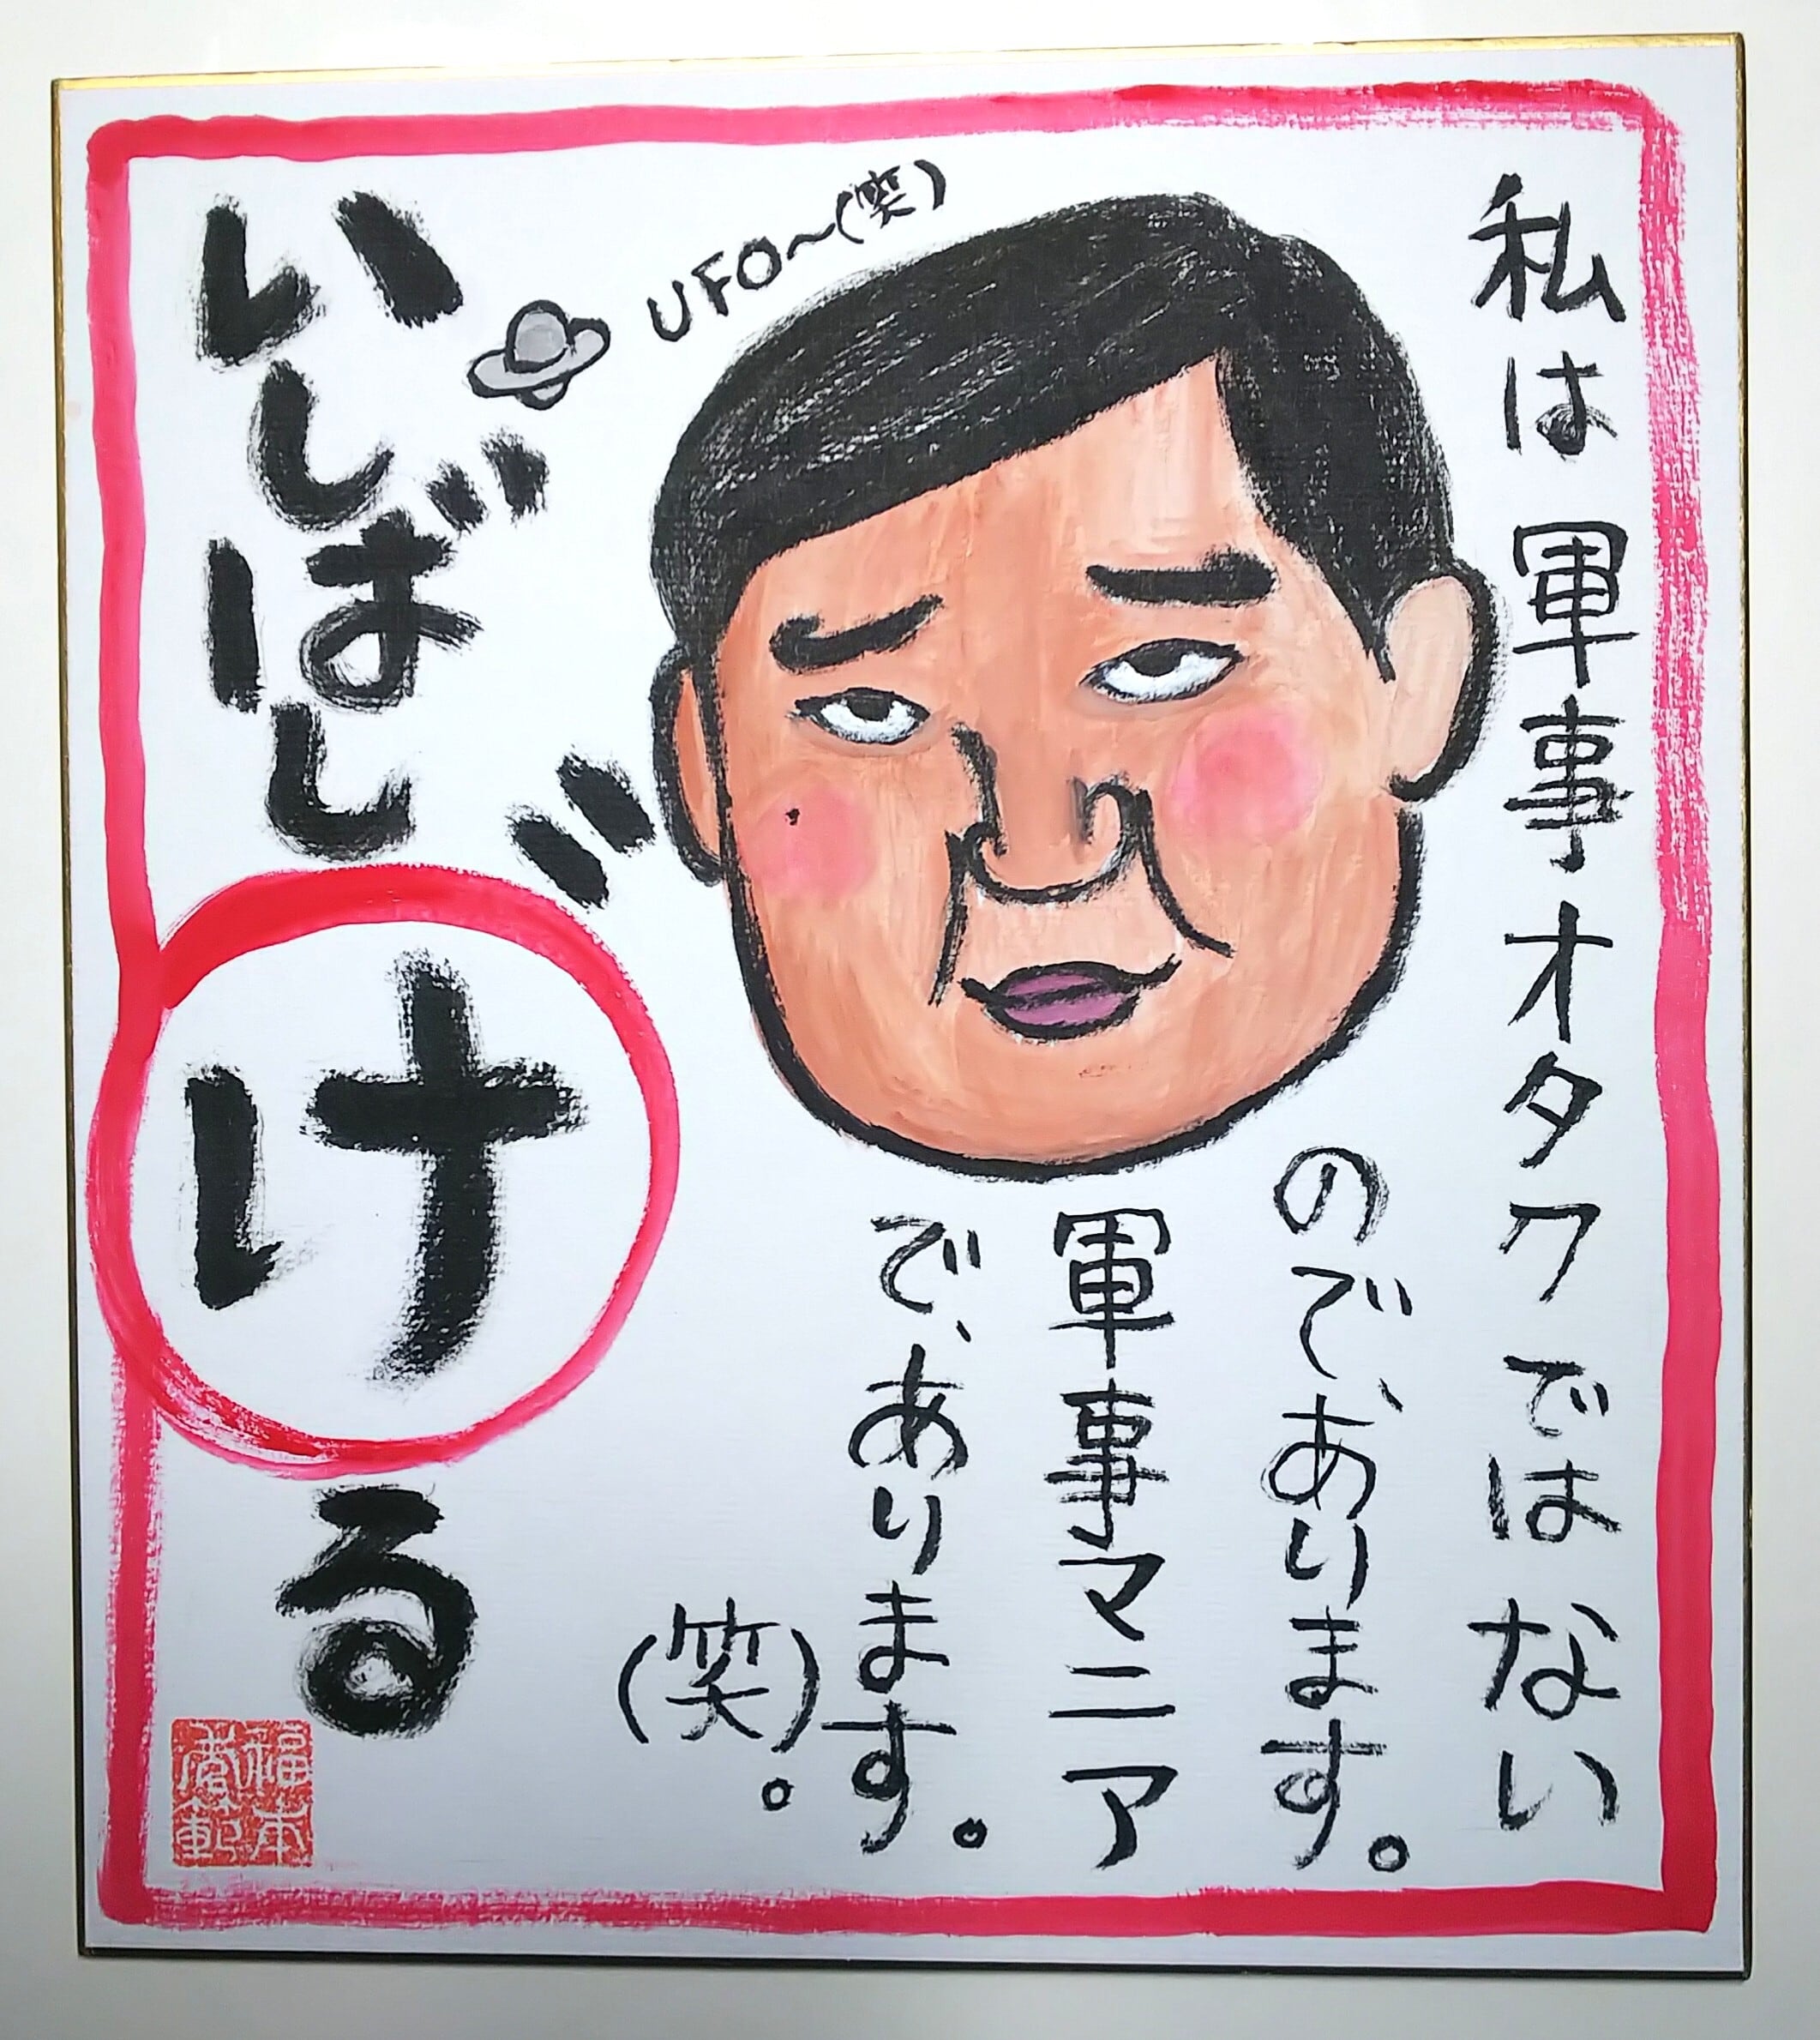 私は軍事オタクではない
のであります。
軍事マニア
であります。
(笑)。
UFO〜(笑)
いしばしげる
福本